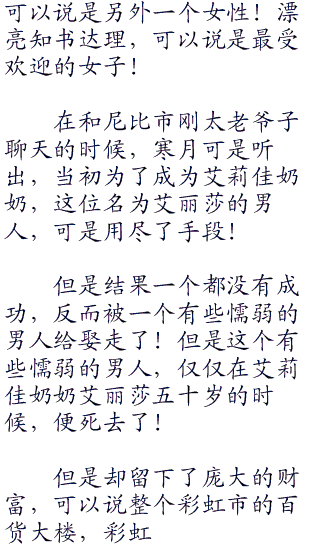 可以说是另外一个女性！漂
亮知书达理，可以说是最受
欢迎的女子！
在和尼比市刚太老爷子
聊天的时候，寒月可是听
出，当初为了成为艾莉佳奶
奶，这位名为艾丽莎的男
人，可是用尽了手段！
但是结果一个都没有成
功，反而被一个有些懦弱的
男人给娶走了！但是这个有
些懦弱的男人，仅仅在艾莉
佳奶奶艾丽莎五十岁的时
候，便死去了！
但是却留下了庞大的财
富，可以说整个彩虹市的百
货大楼，彩虹